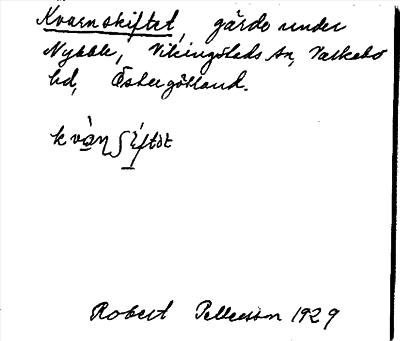 Kvarnskiftet, gärde under
Nybble, Vikingstads sn, Valkebo
hd, Östergötland.
kvàn ʃíftət
Robert Pettersson 1929